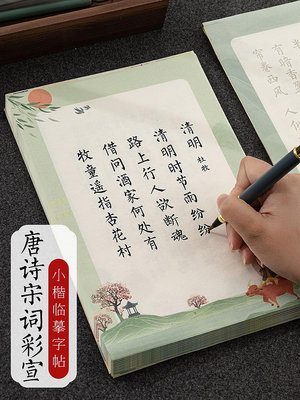 清明 杜牧
清明时节雨纷纷
路上行人欲断魂
借问酒家何处有
牧童遥指杏花村
有暗香盈
帘卷西风 人
唐诗宋词彩宣
小楷临摹字帖